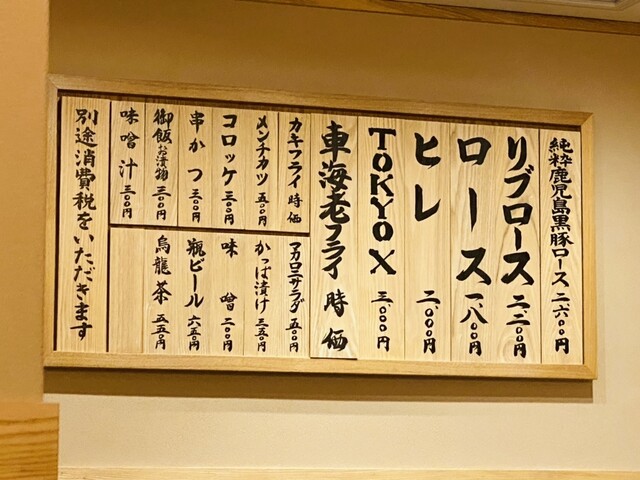 純粋鹿児島黒豚ロース 二六〇〇円
リブロース 二、二〇〇円
ロース 一、八〇〇円
ヒレ 二、〇〇〇円
TOKYO X 三、〇〇〇円
車海老フライ 時価
カキフライ 時価
メンチカツ 五〇〇円
コロッケ 三〇〇円
串かつ 三〇〇円
御飯お漬物 三〇〇円
味噌汁 三〇〇円
マカロニサラダ 五〇〇円
かっぱ漬け 三五〇円
味噌 二〇〇円
瓶ビール 六五〇円
烏龍茶 五五〇円
別途消費税をいただきます